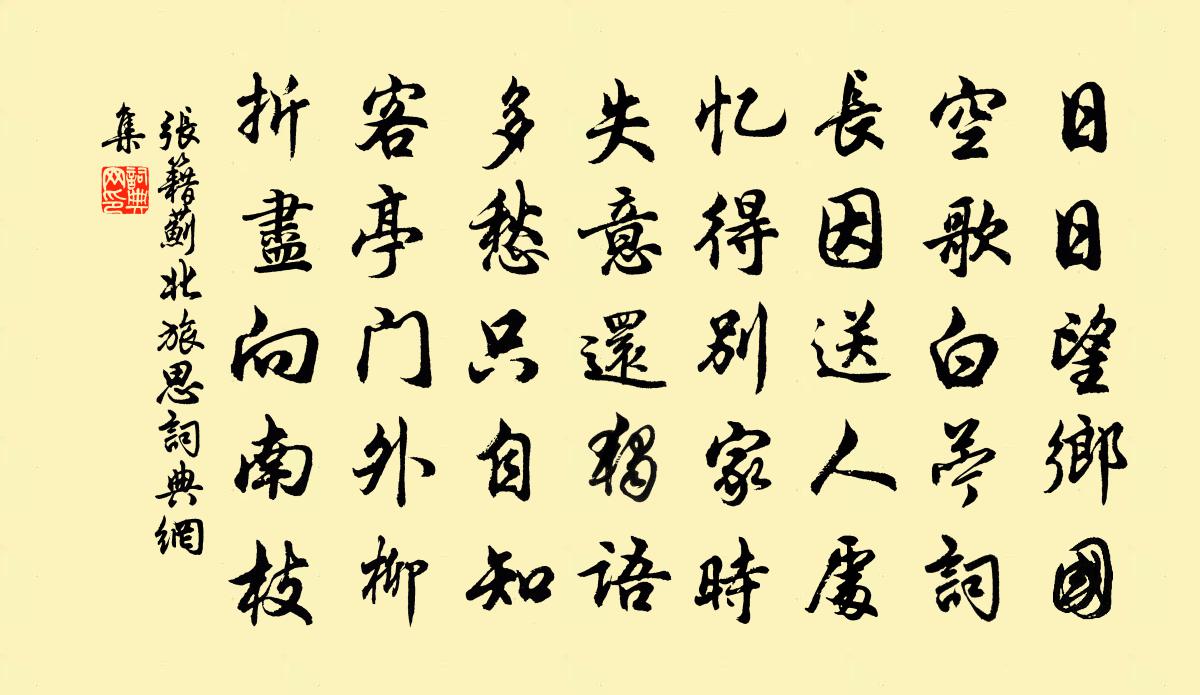 日日望鄉國
空歌白苧詞
長因送人處
忆得別家時
失意還獨語
多愁只自知
客亭门外柳
折盡向南枝
張籍薊北旅思詞典網
集
詞典网印